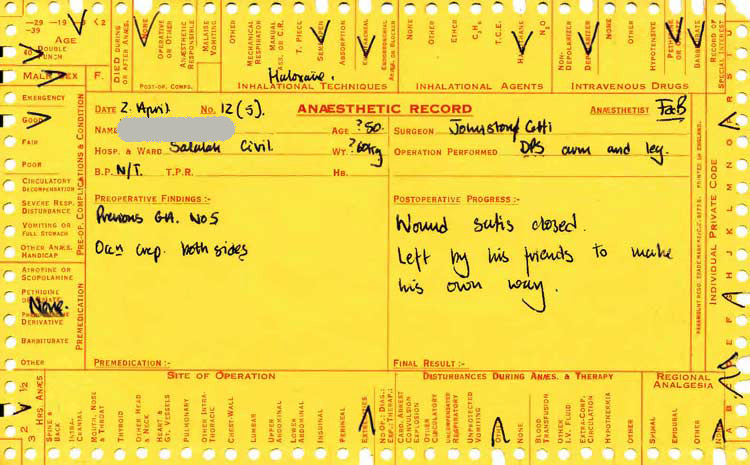 -29 -19 -9 <2
-39
AGE
40
DOUBLE
PUNCH
MALE SEX F.
DIED DURING
OR AFTER ANÆS.
NONE
OPERATIVE
OR OTHER
ANÆSTHETIC
RESPONSIBLE
MALAISE
VOMITING
OTHER
POST-OP. COMPS.
MECHANICAL
RESPIRATOR
MANUAL
ASS. OR C.R.
T. PIECE
ABSORPTION
Haloxaire.
INHALATIONAL TECHNIQUES
NONE
OTHER
ETHER
T.C.E.
N₂O
INHALATIONAL AGENTS
NON-
DEPOLARIZER
DEPOLARIZER
NONE
OTHER
HYPOTENSIVE
PETHIDINE
BARBITURATE
INTRAVENOUS DRUGS
RECORD OF
SPECIAL INTEREST
EMERGENCY
GOOD
FAIR
POOR
CIRCULATORY
DECOMPENSATION
SEVERE RESP.
DISTURBANCE
VOMITING OR
FULL STOMACH
OTHER ANÆS.
HANDICAP
PRE-OP. COMPLICATIONS & CONDITION
ATROPINE OR
SCOPOLAMINE
PETHIDINE
None.
DERIVATIVE
BARBITURATE
OTHER
PREMEDICATION
DATE 2. April No. 12 (5). ANÆSTHETIC RECORD ANÆSTHETIST FaB
NAME AGE ?50. SURGEON Johnstone/Coffi
HOSP. & WARD Salalah Civil. WT. ?60Kg OPERATION PERFORMED DPS arm and leg.
B.P. N/T. T.P.R. HB.
PREOPERATIVE FINDINGS:-
Previous GA. No 5
Occn crep. both sides
PREMEDICATION :-
POSTOPERATIVE PROGRESS:-
Wound satis closed.
Left by his friends to make
his own way.
FINAL RESULT :-
PRINTED IN ENGLAND.
INDIVIDUAL PRIVATE CODE
½ 2 3 HRS. ANÆS.
SITE OF OPERATION
SPINE &
BACK
INTRA-
CRANIAL
MOUTH, NOSE
& THROAT
THYROID
OTHER HEAD
& NECK
HEART &
GT. VESSELS
OTHER INTRA-
THORACIC
CHEST-WALL
LUMBAR
UPPER
ABDOMINAL
LOWER
ABDOMINAL
INGUINAL
PERINEAL
EXTREMITIES
DISTURBANCES DURING ANÆS. & THERAPY
CARD. ARREST
CONVULSION
EXPLOSION
OTHER
CIRCULATORY
RESPIRATORY
UNPROTECTED
VOMITING
OTHER
NONE
BLOOD
TRANSFUSION
OTHER
I.V. FLUID
EXTRA-CORP.
CIRCULATION
HYPOTHERMIA
OTHER
REGIONAL
ANALGESIA
SPINAL
EPIDURAL
OTHER